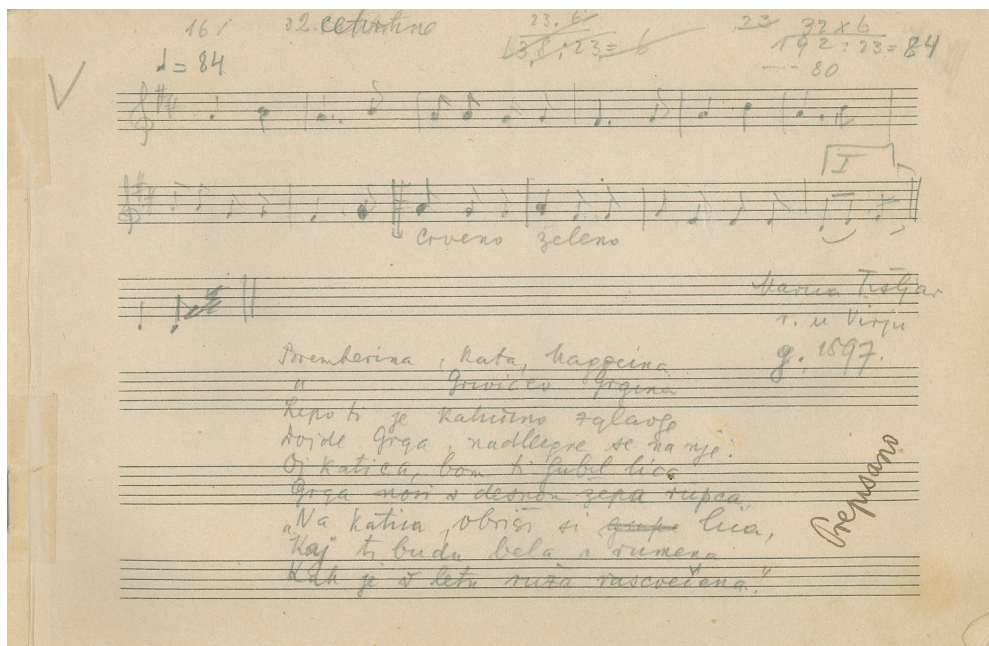 16/ 32 četvrtine
23.6
138:23=6
23 32x6
192:23=84
80
♩=84
I
crveno zeleno
Marica Tišljar
r. u Virju
g. 1897.
Kata,
" Grivićev Grgina
Lepo ti je Katičino zglavje
Dojde Grga, nadlegne se na nje.
Oj Katica, bom ti ljubil lica
Grga nosi v desnom žepu rupca
„Na Katica, obriši si lica,
Kaj ti budu bela i rumena
Kak je v letu ruža rascvečena."
Prepisano